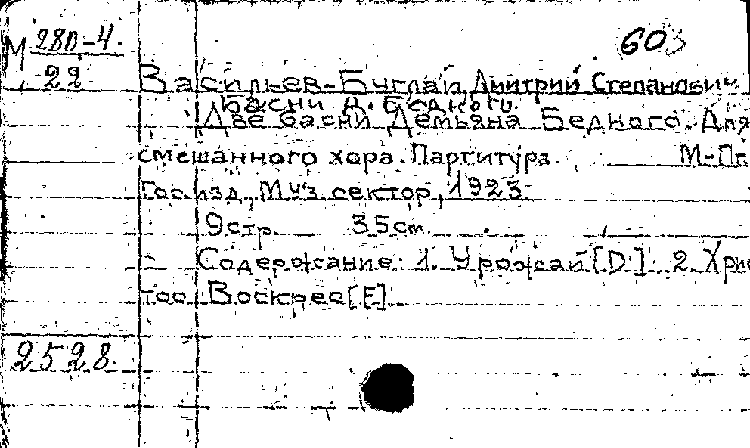 М 280-4
22
603
Васильев-Буглай, Дмитрий Степанович
Басни Д. Бедного
Две басни Демьяна Бедного. Для
смешанного хора. Партитура. М-Пг
Гос. изд., Муз. сектор, 1923.
9 стр. 35 см.
Содержание: 1. Урожай [D]. 2. Хрис
тос Воскрес [F]
2528